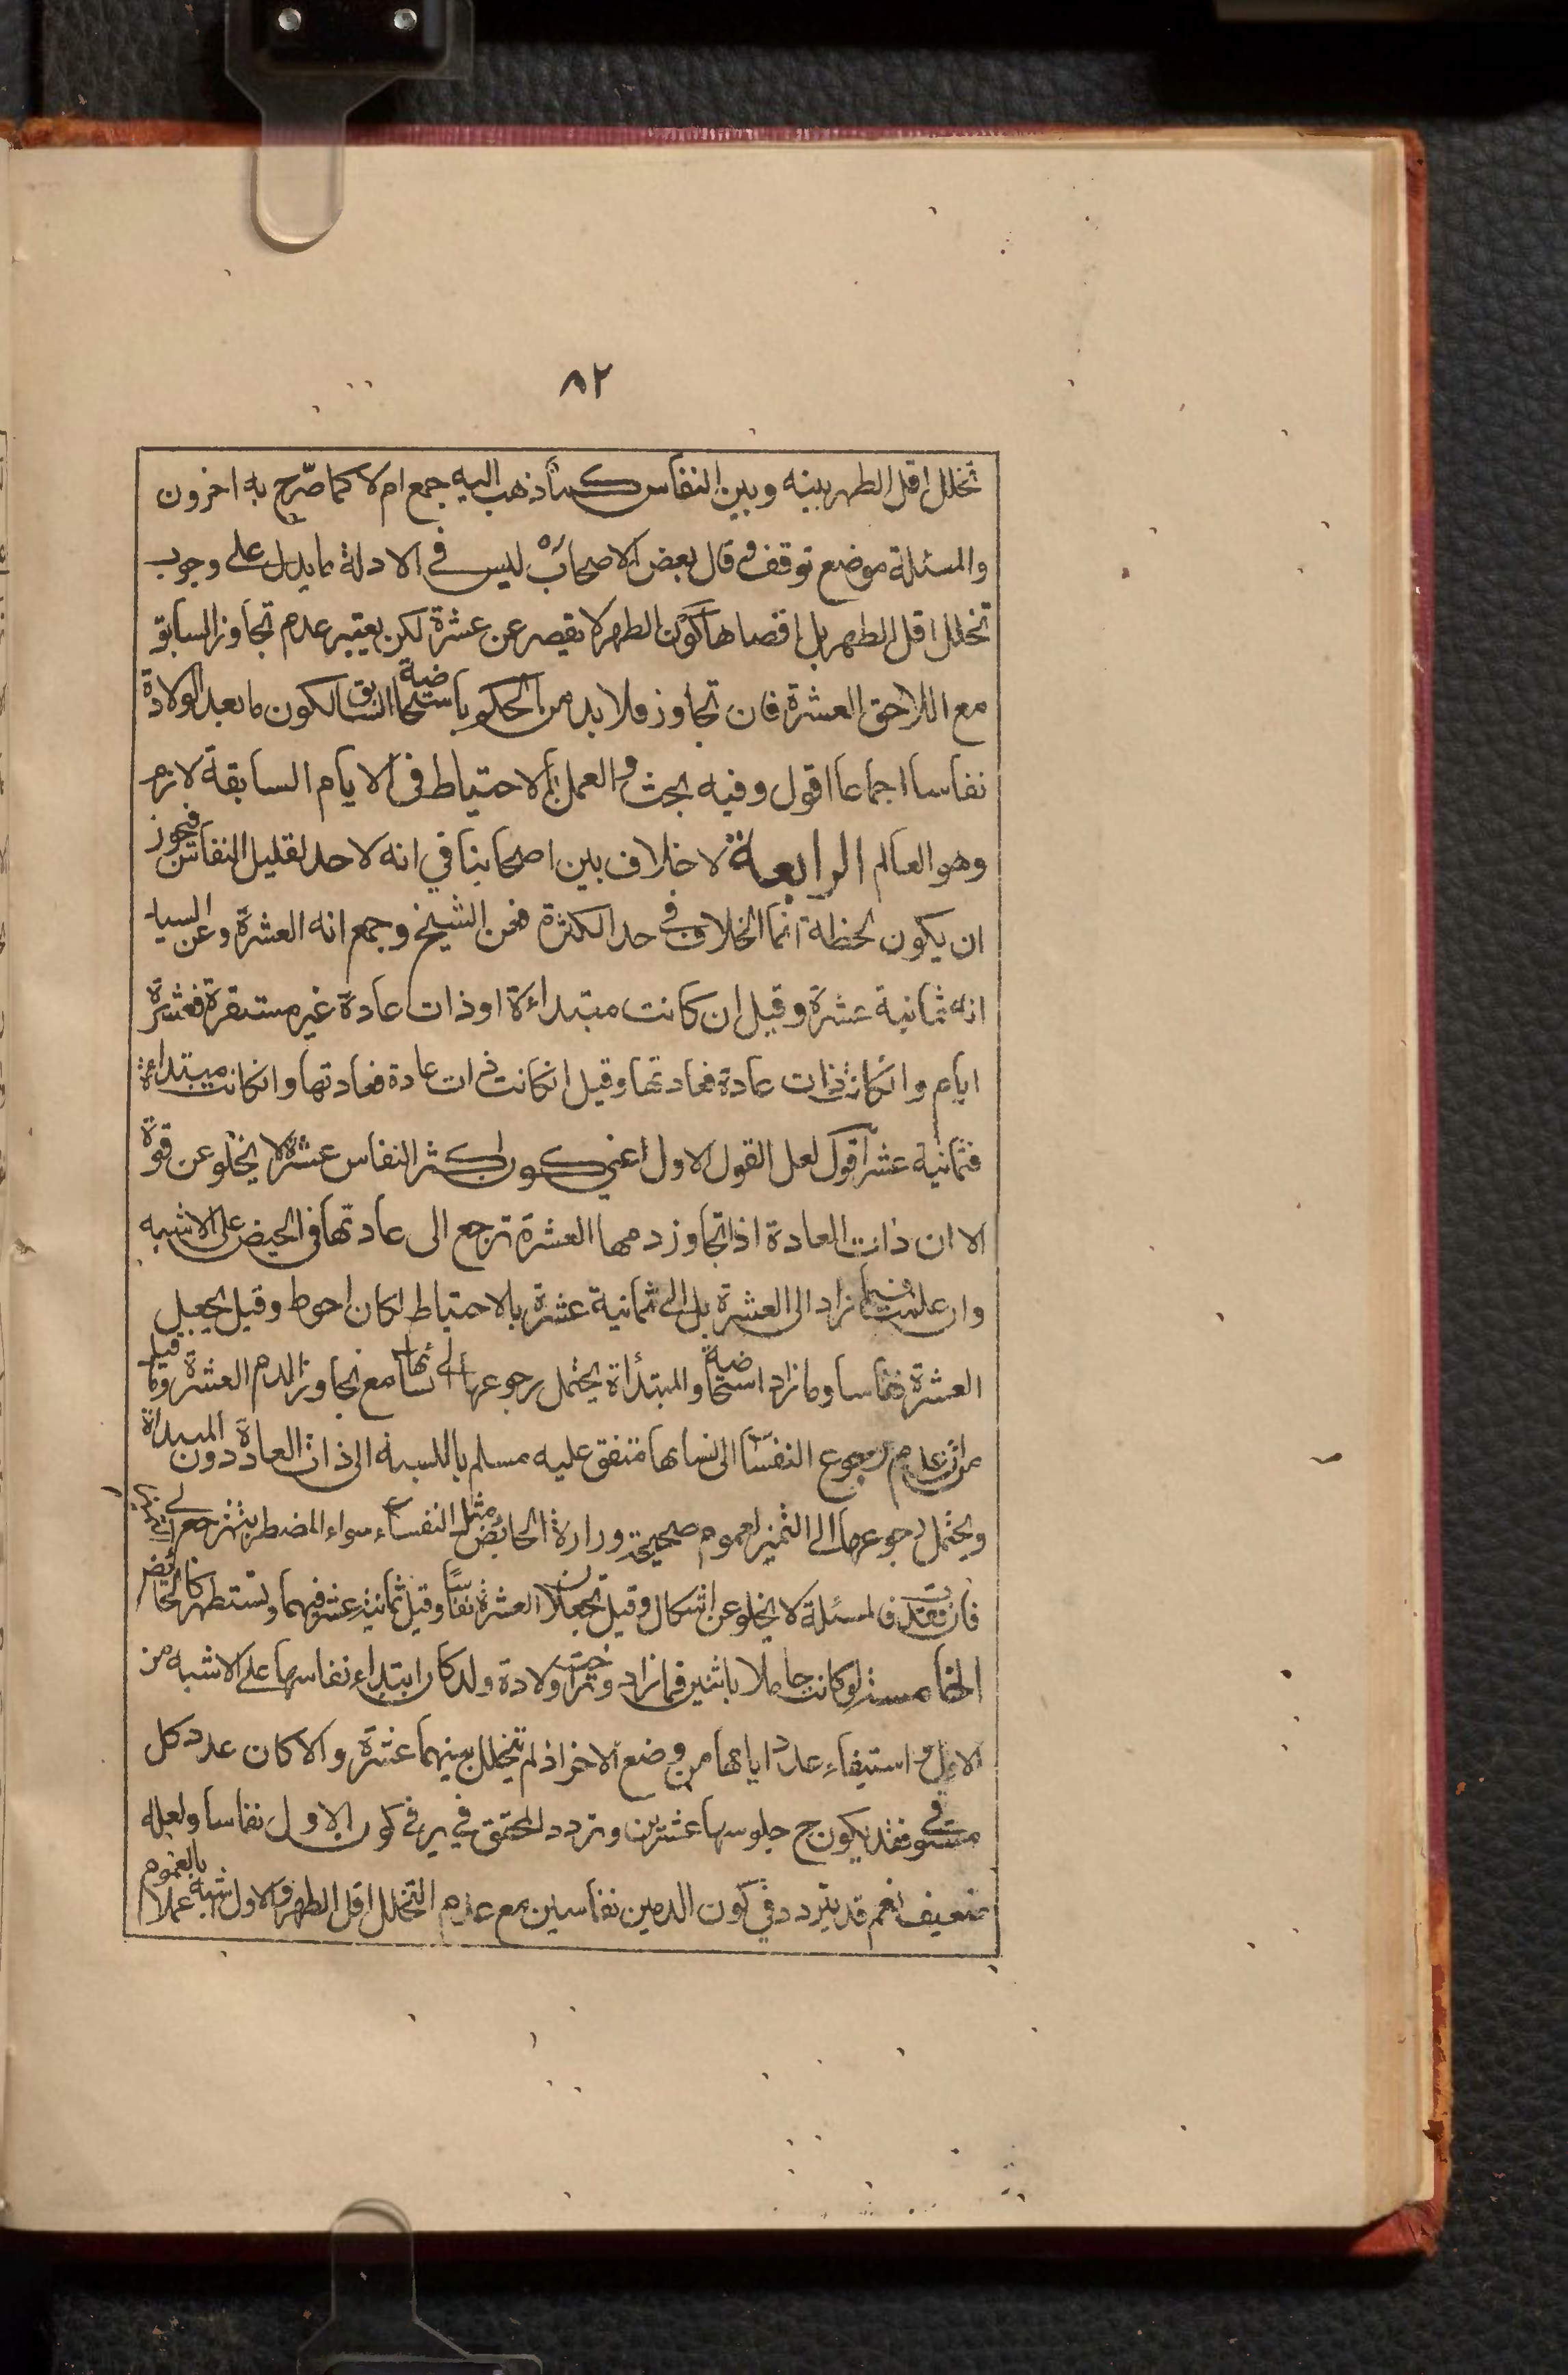 ٨٢
تخلل اقل الطهر بينه وبين النفاس كما ذهب اليه جمع ام لا كما صرّح به اخرون
والمسئلة موضع توقف و قال بعض الاصحاب ره ليس في الادلة ما يدل على وجوب
تخلل اقل الطهر بل اقصاها كون الطهر لا يقصر عن عشرة لكن يعتبر عدم تجاوز السابق
مع اللاحق العشرة فان تجاوز فلا بد من الحكم باستحاضة السابق لكون ما بعد الولادة
نفاسا اجماعا اقول وفيه بحث و العمل بالاحتياط في الايام السابقة لازم
وهو العالم الرابعة لا خلاف بين اصحابنا في انه لا حد لقليل النفاس فيجوز
ان يكون لحظة انما الخلاف في حد الكثرة فعن الشيخ وجمع انه العشرة وعن السيد
انه ثمانية عشرة وقيل ان كانت مبتداءة او ذات عادة غير مستقرة فعشرة
ايام وانكانت ذات عادة فعادتها وقيل انكانت ذات عادة فعادتها وانكانت مبتداءة
فثمانية عشر اقول لعل القول الاول اعني كون اكثر النفاس عشرة لا يخلو عن قوة
الا ان ذات العادة اذا تجاوز دمها العشرة ترجع الى عادتها في الحيض على الاشبه
وان عملت فيما زاد الى العشرة بل الى ثمانية عشرة بالاحتياط لكان احوط وقيل يجعل
العشرة نفاسا وما زاد استحاضة والمبتدأة يحتمل رجوعها الى نسائها مع تجاوز الدم العشرة وما قيل
من ان عدم رجوع النفساء الى نسائها متفق عليه مسلم بالنسبة الى ذات العادة دون المبتدأة
ويحتمل رجوعها الى التميز لعموم صحيحة زرارة الحائض مثل النفساء سواء المضطربة ترجع الى
فان فقدت فالمسئلة لا يخلو عن اشكال وقيل تجعلان العشرة نفاسًا وقيل ثمانية عشر فيهما وتستظهر كالحائض
الخامسة لو كانت حاملا باثنين فما زاد وتراخت ولادة ولد كان ابتداء نفاسها على الاشبه من
الاول واستيفاء عدد ايامها من وضع الاخر اذ لم يتخلل بينهما عشرة والا كان عدد كل
مستوفى فقد يكون ح جلوسها عشرين وتردد المحقق في ير في كون الاول نفاسا ولعله
ضعيف نعم قد يتردد في كون الدمين نفاسين مع عدم التخلل اقل الطهر والاول اشبه عملا بالعموم